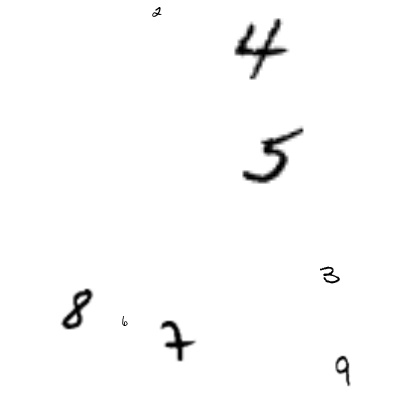 2
4
5
3
8 6 7
9